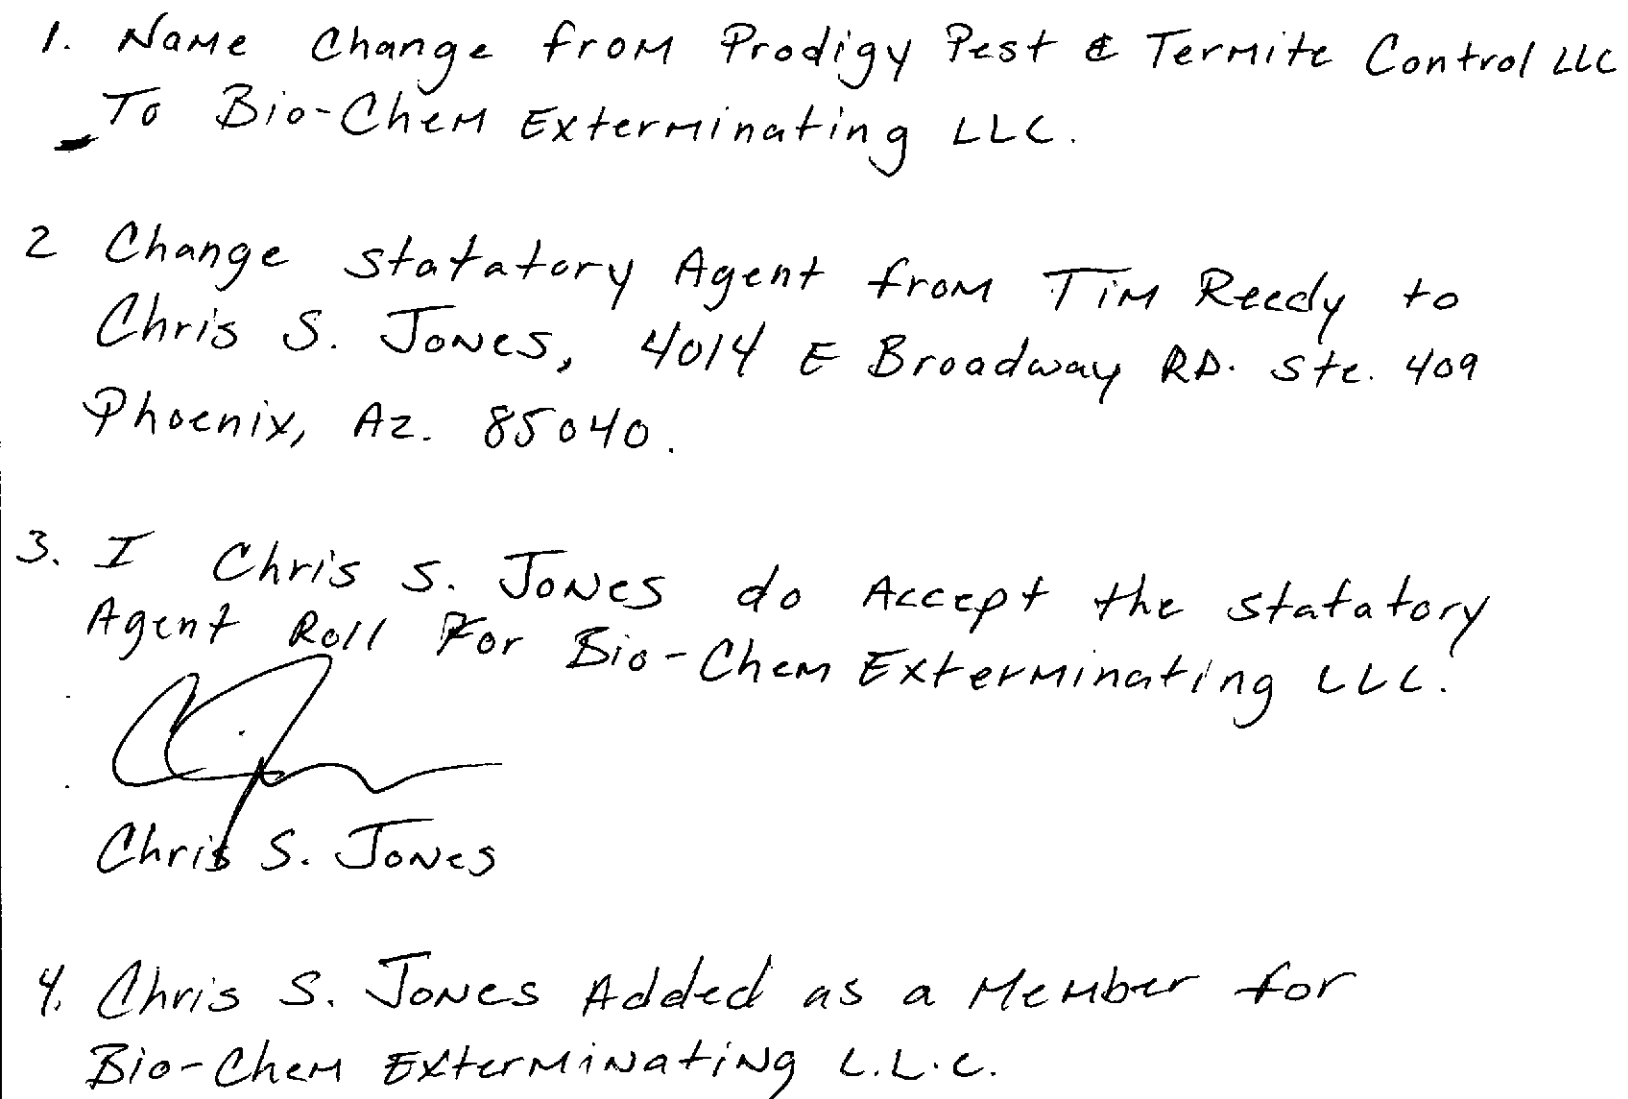 1. Name Change from Prodigy Pest & Termite Control LLC
To Bio-Chem Exterminating LLC.
2 Change statatory Agent from Tim Reedy to
Chris S. Jones, 4014 E Broadway RD. Ste. 409
Phoenix, Az. 85040.
3. I Chris S. Jones do Accept the statatory
Agent Roll For Bio-Chem Exterminating LLC.
Chris S. Jones
4. Chris S. Jones Added as a Member for
Bio-Chem Exterminating L.L.C.